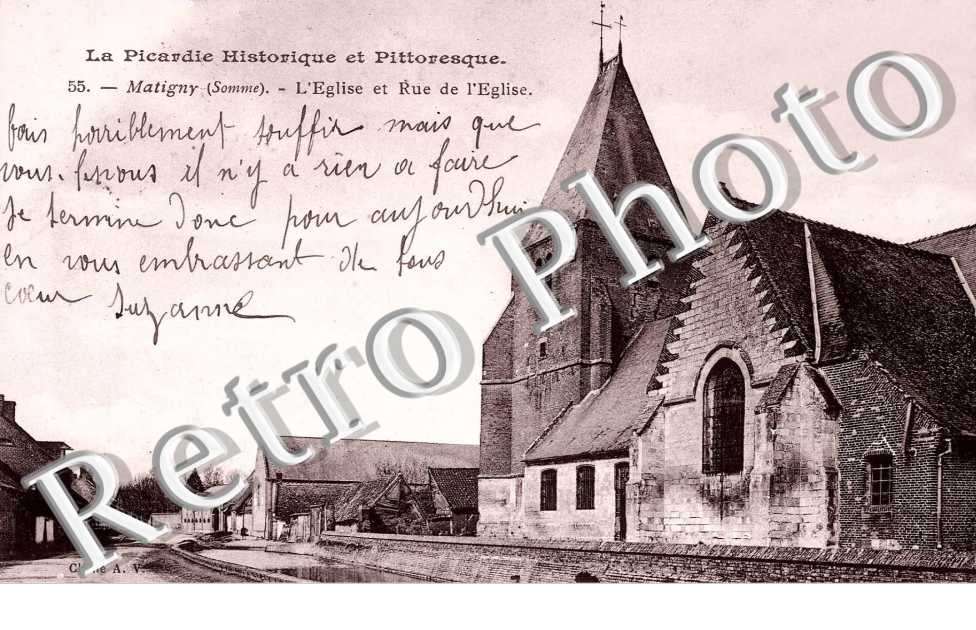 La Picardie Historique et Pittoresque.
55. — Matigny (Somme). - L'Eglise et Rue de l'Eglise.
fais horriblement souffrir mais que
vous il n'y a rien a faire
Je termine donc pour aujourd'hui
en vous embrassant de tous
cœur Suzanne
Retro Photo
A. V.